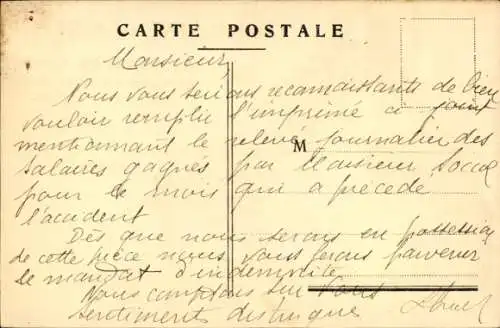 CARTE POSTALE
Monsieur,
Nous vous serions reconnaissants de bien
vouloir remplir l'imprimé ci joint
mentionnant le relevé journalier des
M
salaires gagnés par Monsieur
pour le mois qui a précédé
l'accident
Dès que nous serons en possession
de cette pièce nous vous ferons parvenir
le mandat d'indemnité
Nous comptons sur Vous
sentiments distingués